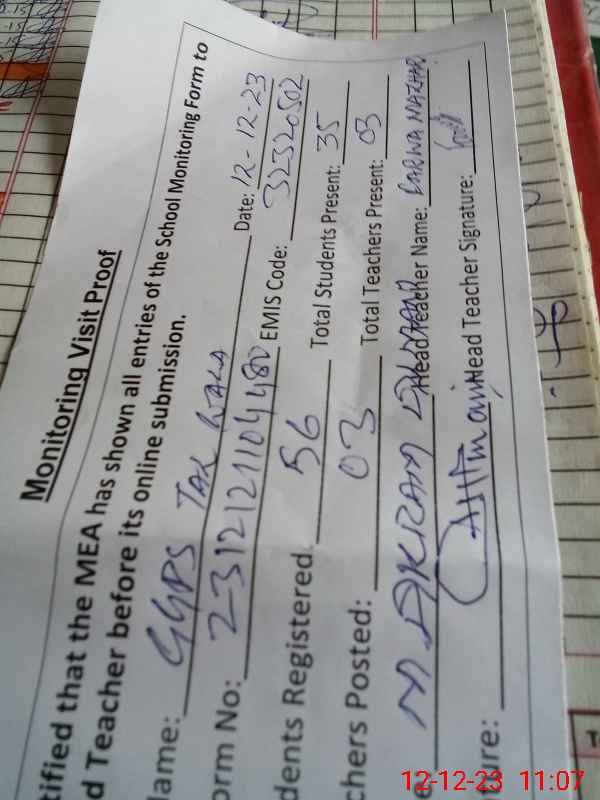 Monitoring Visit Proof
tified that the MEA has shown all entries of the School Monitoring Form to
d Teacher before its online submission.
Name: GGPS TAK WALA Date: 12-12-23
orm No: 231212110448 EMIS Code: 32320502
dents Registered: 56 Total Students Present: 35
chers Posted: 03 Total Teachers Present: 03
e M. AKRAM Head Teacher Name: MAZHAR
ture: Head Teacher Signature:
12-12-23 11:07